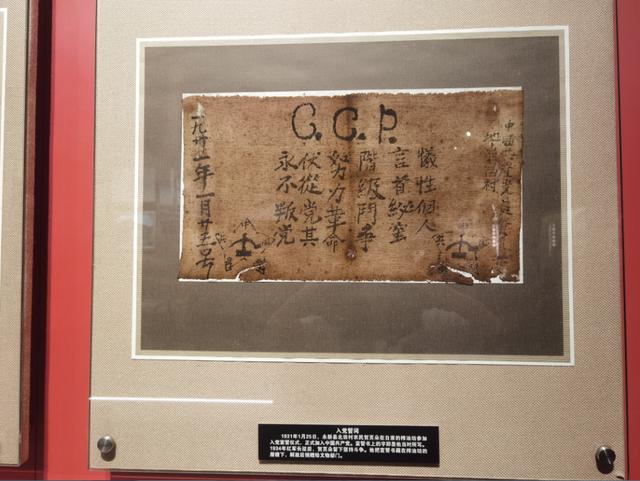 C.C.P.
犧牲個人
言首泌蜜
階級鬥争
努力革命
伏從党其
永不叛党
一九卅一年一月廿五号
入党誓词
1931年1月25日，永新县北田村农民贺页朵在自家的榨油坊参加
入党宣誓仪式，正式加入中国共产党。宣誓书上的字即是他当时所写。
1934年红军长征后，贺页朵留下坚持斗争。他把宣誓书藏在榨油坊的
屋檐下，解放后捐赠给文物部门。